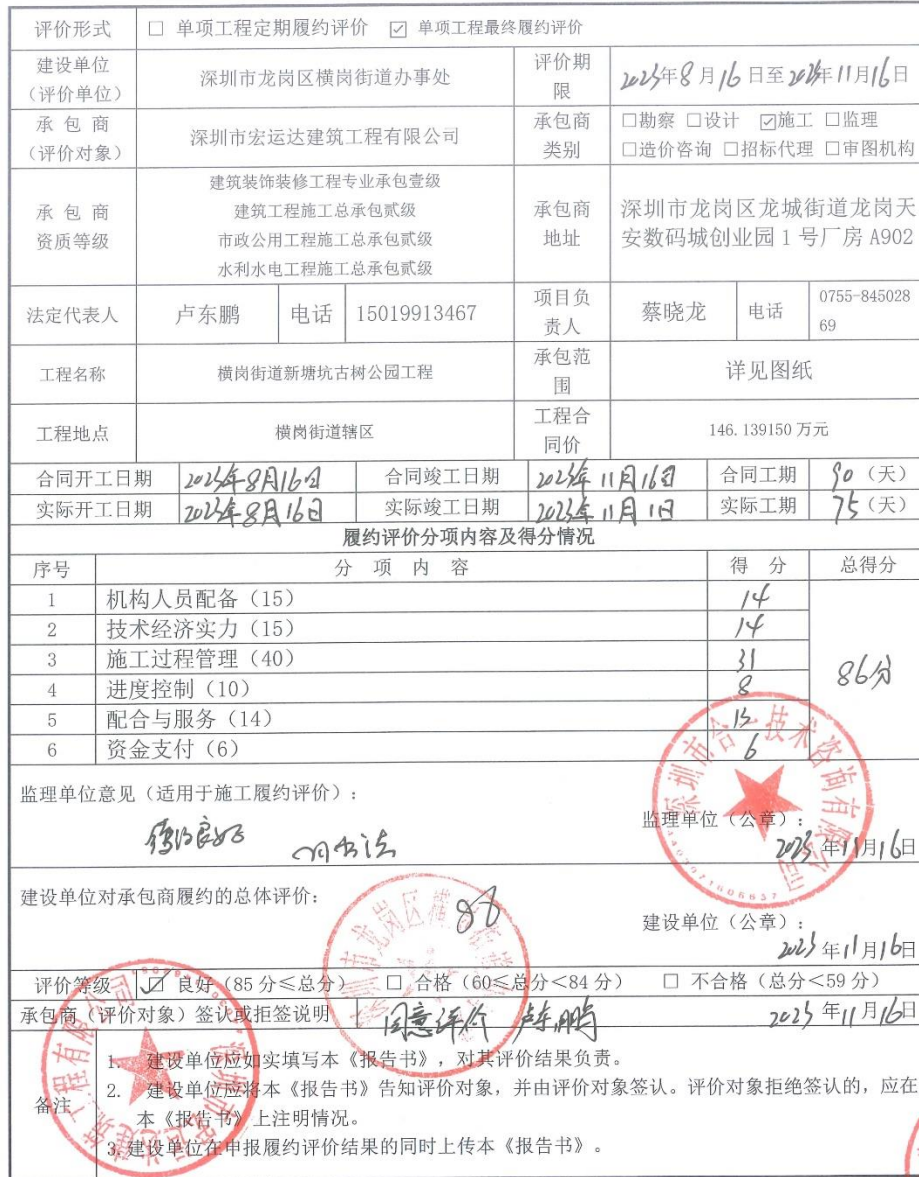 评价形式 □ 单项工程定期履约评价 ☑ 单项工程最终履约评价
建设单位（评价单位） 深圳市龙岗区横岗街道办事处 评价期限 2023年8月16日至2023年11月16日
承包商（评价对象） 深圳市宏运达建筑工程有限公司 承包商类别 □勘察 □设计 ☑施工 □监理
□造价咨询 □招标代理 □审图机构
承包商资质等级 建筑装饰装修工程专业承包壹级
建筑工程施工总承包贰级
市政公用工程施工总承包贰级
水利水电工程施工总承包贰级
承包商地址 深圳市龙岗区龙城街道龙岗天
安数码城创业园 1 号厂房 A902
法定代表人 卢东鹏 电话 15019913467 项目负责人 蔡晓龙 电话 0755-845028
69
工程名称 横岗街道新塘坑古树公园工程 承包范围 详见图纸
工程地点 横岗街道辖区 工程合同价 146.139150 万元
合同开工日期 2023年8月16日 合同竣工日期 2023年11月16日 合同工期 90（天）
实际开工日期 2023年8月16日 实际竣工日期 2023年11月1日 实际工期 75（天）
履约评价分项内容及得分情况
序号 分 项 内 容 得 分 总得分
1 机构人员配备（15） 14
2 技术经济实力（15） 14
3 施工过程管理（40） 31
4 进度控制（10） 8
5 配合与服务（14） 13
6 资金支付（6） 6
86分
监理单位意见（适用于施工履约评价）：
监理单位（公章）：
2023年11月16日
深圳市合一技术咨询有限公司
建设单位对承包商履约的总体评价：
建设单位（公章）：
2023年11月16日
评价等级 ☑ 良好（85 分≤总分） □ 合格（60≤总分＜84 分） □ 不合格（总分＜59 分）
承包商（评价对象）签认或拒签说明 同意评价 卢东鹏 2023年11月16日
备注
1. 建设单位应如实填写本《报告书》，对其评价结果负责。
2. 建设单位应将本《报告书》告知评价对象，并由评价对象签认。评价对象拒绝签认的，应在
本《报告书》上注明情况。
3.建设单位在申报履约评价结果的同时上传本《报告书》。